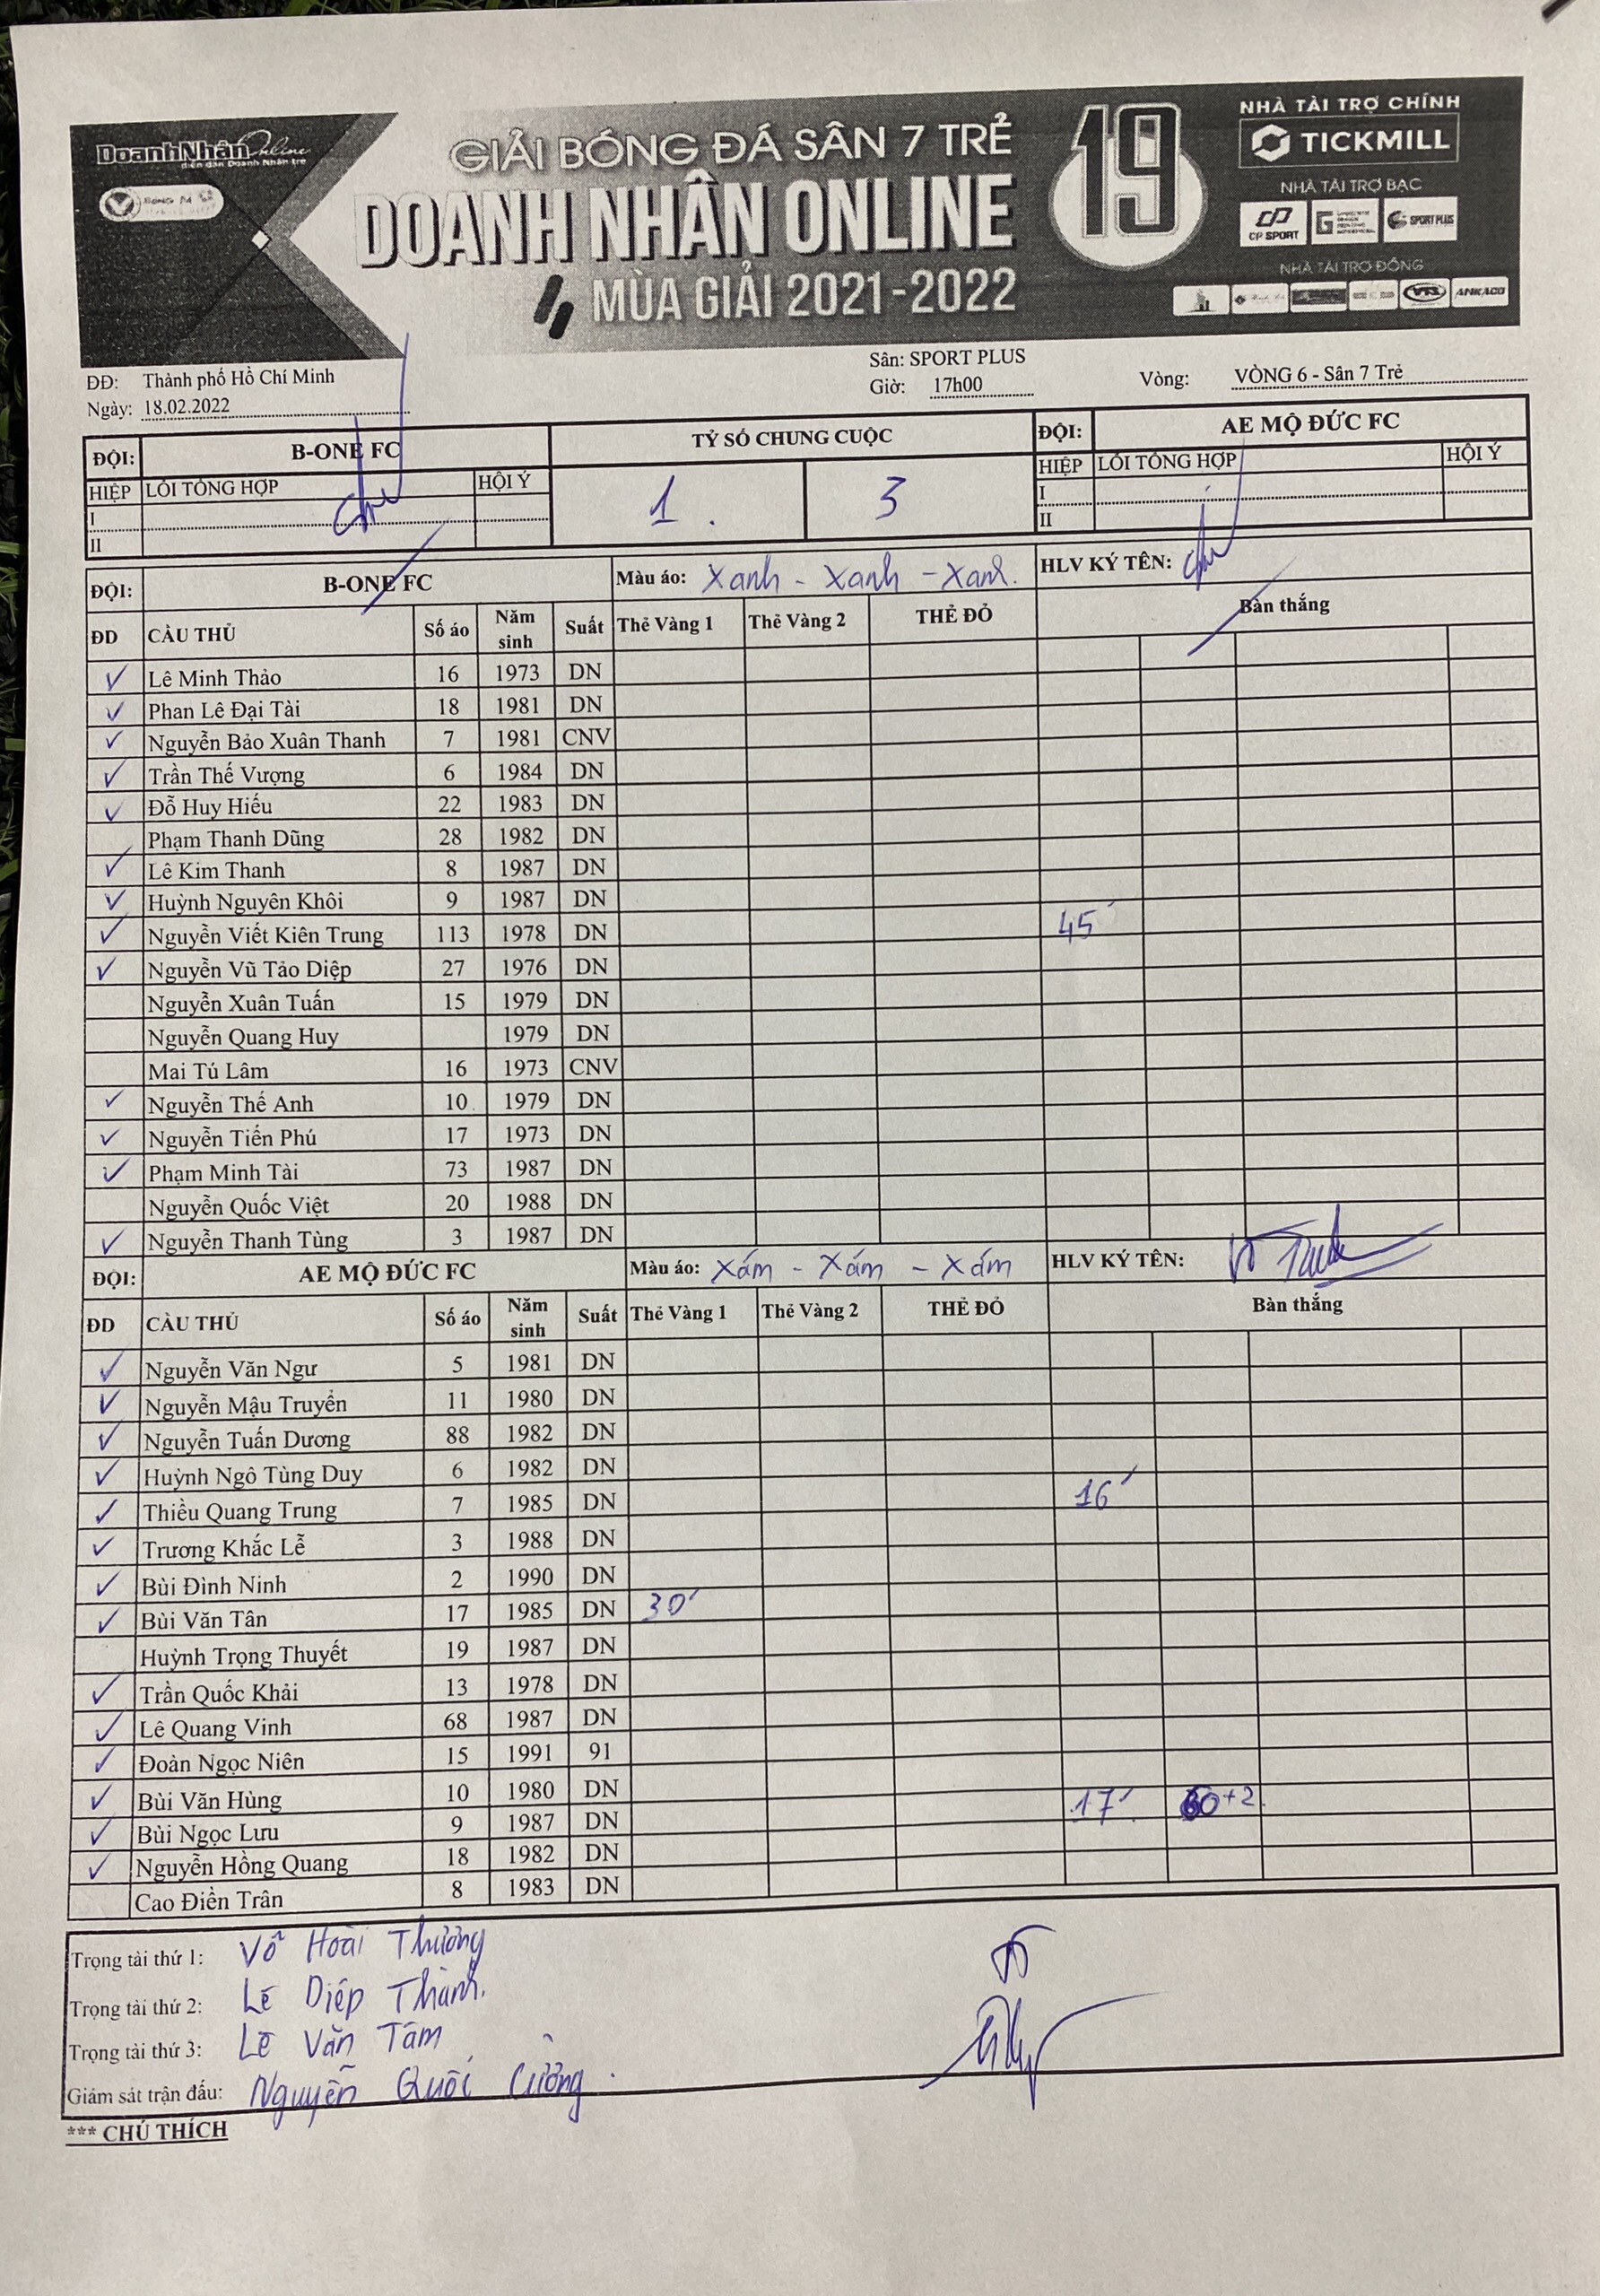 DoanhNhân Online
diễn đàn Doanh Nhân trẻ
GIẢI BÓNG ĐÁ SÂN 7 TRẺ
DOANH NHÂN ONLINE
MÙA GIẢI 2021-2022
19
NHÀ TÀI TRỢ CHÍNH
TICKMILL
NHÀ TÀI TRỢ BẠC
CP SPORT
SPORT PLUS
NHÀ TÀI TRỢ ĐỒNG
ANKACO
ĐĐ: Thành phố Hồ Chí Minh
Sân: SPORT PLUS
Ngày: 18.02.2022
Giờ: 17h00
Vòng: VÒNG 6 - Sân 7 Trẻ
ĐỘI: B-ONE FC TỶ SỐ CHUNG CUỘC ĐỘI: AE MỘ ĐỨC FC
HIỆP LỖI TỔNG HỢP HỘI Ý 1 3 HIỆP LỖI TỔNG HỢP HỘI Ý
I I
II II
ĐỘI: B-ONE FC Màu áo: Xanh - Xanh - Xanh. HLV KÝ TÊN:
ĐD CẦU THỦ Số áo Năm sinh Suất Thẻ Vàng 1 Thẻ Vàng 2 THẺ ĐỎ Bàn thắng
✓ Lê Minh Thảo 16 1973 DN
✓ Phan Lê Đại Tài 18 1981 DN
✓ Nguyễn Bảo Xuân Thanh 7 1981 CNV
✓ Trần Thế Vượng 6 1984 DN
✓ Đỗ Huy Hiếu 22 1983 DN
Phạm Thanh Dũng 28 1982 DN
✓ Lê Kim Thanh 8 1987 DN
✓ Huỳnh Nguyên Khôi 9 1987 DN
✓ Nguyễn Viết Kiên Trung 113 1978 DN 45'
✓ Nguyễn Vũ Tảo Diệp 27 1976 DN
Nguyễn Xuân Tuấn 15 1979 DN
Nguyễn Quang Huy 1979 DN
Mai Tú Lâm 16 1973 CNV
✓ Nguyễn Thế Anh 10 1979 DN
✓ Nguyễn Tiến Phú 17 1973 DN
✓ Phạm Minh Tài 73 1987 DN
Nguyễn Quốc Việt 20 1988 DN
✓ Nguyễn Thanh Tùng 3 1987 DN
ĐỘI: AE MỘ ĐỨC FC Màu áo: Xám - Xám - Xám HLV KÝ TÊN:
ĐD CẦU THỦ Số áo Năm sinh Suất Thẻ Vàng 1 Thẻ Vàng 2 THẺ ĐỎ Bàn thắng
✓ Nguyễn Văn Ngư 5 1981 DN
✓ Nguyễn Mậu Truyển 11 1980 DN
✓ Nguyễn Tuấn Dương 88 1982 DN
✓ Huỳnh Ngô Tùng Duy 6 1982 DN
✓ Thiều Quang Trung 7 1985 DN 16'
✓ Trương Khắc Lễ 3 1988 DN
✓ Bùi Đình Ninh 2 1990 DN
✓ Bùi Văn Tân 17 1985 DN 30'
Huỳnh Trọng Thuyết 19 1987 DN
✓ Trần Quốc Khải 13 1978 DN
✓ Lê Quang Vinh 68 1987 DN
✓ Đoàn Ngọc Niên 15 1991 91
✓ Bùi Văn Hùng 10 1980 DN 17' 60+2
✓ Bùi Ngọc Lưu 9 1987 DN
✓ Nguyễn Hồng Quang 18 1982 DN
Cao Điền Trân 8 1983 DN
Trọng tài thứ 1: Võ Hoài Thương
Trọng tài thứ 2: Lê Diệp Thành.
Trọng tài thứ 3: Lê Văn Tám
Giám sát trận đấu: Nguyễn Quốc Cường.
*** CHÚ THÍCH